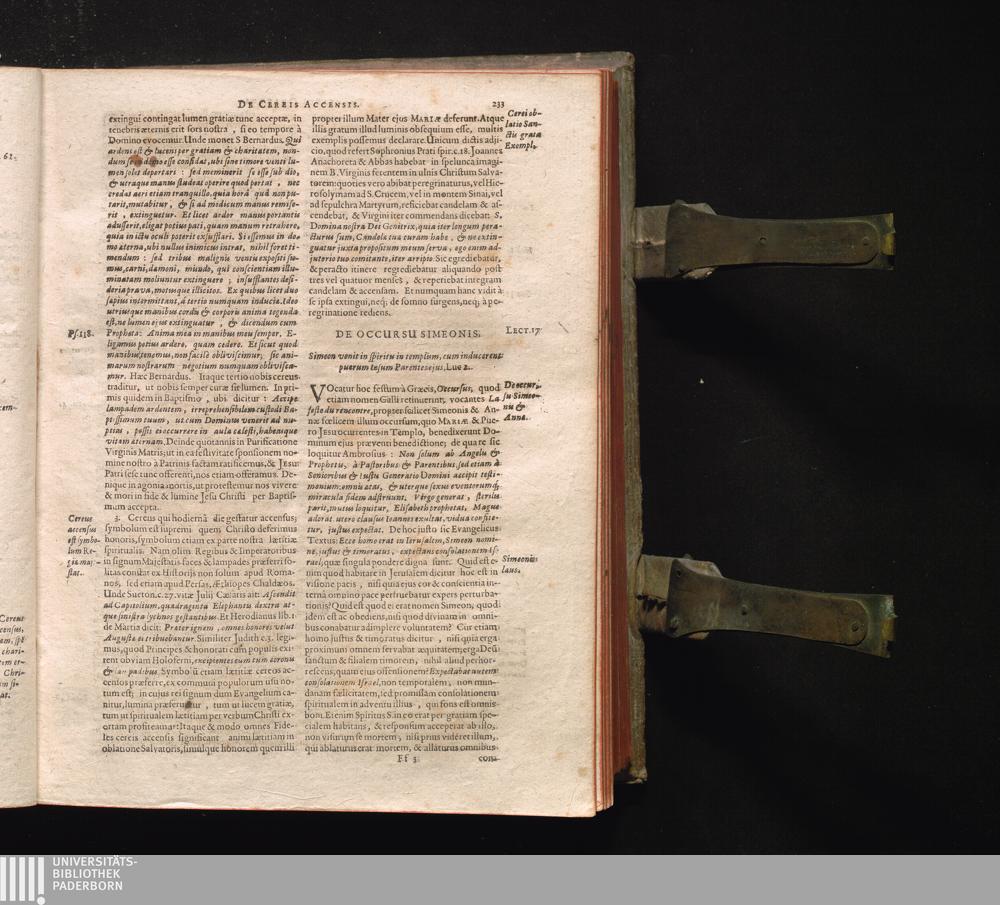 DE CEREIS ACCENSIS.
233
extingui contingat lumen gratiæ tunc acceptæ, in
tenebris æternis erit sors nostra, si eo tempore à
Domino evocemur. Unde monet S Bernardus. Qui
ardens est & lucens per gratiam & charitatem, non-
dum se in domo esse confidat, ubi sine timore venti lu-
men solet deportari: sed meminerit se esse sub dio,
& utraque manu studeat operire quod portat, nec
credat aëri etiam tranquillo, quia horâ quâ non pu-
tarit, mutabitur, & si ad modicum manus remise-
rit, extinguetur. Et licet ardor manus portantis
adusserit, eligat potius pati, quam manum retrahere,
quia in ictu oculi poterit exsufflari. Si essemus in do-
mo æterna, ubi nullus inimicus intrat, nihil foret ti-
mendum: sed tribus malignis ventis expositi su-
mus, carni, dæmoni, mundo, qui conscientiam illu-
minatam moliuntur extinguere; insufflantes desi-
deria prava, motusque illicitos. Ex quibus licet duo
sæpius intermittant, à tertio numquam induciæ. Ideo
utriusque manibus cordis & corporis anima tegenda
est, ne lumen ejus extinguatur, & dicendum cum
Propheta: Anima mea in manibus meis semper. E-
ligamus potius ardere, quam cedere. Et sicut quod
manibus tenemus, non facilè obliviscimur; sic ani-
marum nostrarum negotium numquam oblivisca-
mur. Hæc Bernardus. Itaque tertio nobis cereus
traditur, ut nobis semper curæ sit lumen. In pri-
mis quidem in Baptismo, ubi dicitur: Accipe
lampadem ardentem, irreprehensibilem custodi Ba-
ptissimum tuum, ut cum Dominus venerit ad nu-
ptias, possis ei occurrere in aula cælesti, habeasque
vitam æternam. Deinde quotannis in Purificatione
Virginis Matris; ut in ea festivitate sponsionem no-
mine nostro à Patrinis factam ratificemus, & Jesus
Patri sese tunc offerenti, nos etiam offeramus. De-
nique in agonia mortis, ut protestemur nos vivere
& mori in fide & lumine Jesu Christi per Baptis-
mum accepta.
3. Cereus qui hodierna die gestatur accensus;
symbolum est supremi quem Christo deferimus
honoris, symbolum etiam ex parte nostra lætitiæ
spiritualis. Nam olim Regibus & Imperatoribus
in signum Majestatis faces & lampades præferri so-
litas constat ex Historijs non solum apud Roma-
nos, sed etiam apud Persas, Æthiopes Chaldæos.
Unde Sueton. c. 27. vitæ Julij Cæsaris ait: Ascendit
ad Capitolium, quadraginta Elephantis dextra at-
que sinistra lychnos gestantibus. Et Herodianus lib. 1.
de Martia dicit: Præter ignem, omnes honores velut
Augustæ ei tribuebantur. Similiter Judith c. 3. legi-
mus, quod Principes & honorati cum populis exi-
rent obviam Holoferni, excipientes eum cum coronis
& lampadibus. Symbolū etiam lætitiæ cereos ac-
censos præferre, ex communi populorum usu no-
tum est; in cujus rei signum dum Evangelium ca-
nitur, lumina præferuntur, tum ut lucem gratiæ,
tum ut spiritualem lætitiam per verbum Christi ex-
ortam profiteamur: Itaque & modo omnes Fide-
les cereis accensis significant animi lætitiam in
oblatione Salvatoris, simulque honorem quem illi
Ps. 118.
Cereus
accensus
est symbo-
lum Re-
giæ maje-
stat..
propter illum Mater ejus MARIÆ deferunt. Atque
illis gratum illud luminis obsequium esse, multis
exemplis possemus declarare. Unicum dictis adji-
cio, quod refert Sophronius Prati spir. c. 18. Joannes
Anachoreta & Abbas habebat in spelunca imagi-
nem B. Virginis ferentem in ulnis Christum Salva-
torem: quoties vero abibat peregrinaturus, vel Hie-
rosolymam ad S. Crucem, vel in montem Sinai, vel
ad sepulchra Martyrum, reficiebat candelam & as-
cendebat, & Virgini iter commendans dicebat: S.
Domina nostra Dei Genitrix, quia iter longum pera-
cturus sum, Candelæ tuæ curam habe, & ne extin-
guatur juxta propositum meum serva, ego enim ad-
jutorio tuo comitante, iter arripio. Sic egrediebatur,
& peracto itinere regrediebatur aliquando post
tres vel quatuor menses, & reperiebat integram
candelam & accensam. Et numquam hanc vidit à
se ipsa extingui, neq; de somno surgens, neq; à pe-
regrinatione rediens.
Cerei ob-
latio San-
ctis grata
Exempl.
DE OCCURSU SIMEONIS.
LECT. 17
Simeon venit in spiritu in templum, cum inducerent
puerum Iesum Parentes ejus, Luc 2.
VOcatur hoc festum à Græcis, Occursus, quod
etiam nomen Galli retinuerunt, vocantes La
feste du rencontre, propter scilicet Simeonis & An-
næ fœlicem illum occursum, quo MARIÆ & Pue-
ro Jesu occurrentes in Templo, benedixerunt Do-
minum ejus præventi benedictione; de qua re sic
loquitur Ambrosius: Non solum ab Angelis &
Prophetis, à Pastoribus & Parentibus, sed etiam à
Senioribus & Iustis Generatio Domini accipit testi-
monium: omnis ætas, & uterque sexus eventorumq;
miracula fidem adstruunt. Virgo generat, sterilis
parit, mutus loquitur, Elisabeth prophetat, Magus
adorat utero clausus Ioannes exultat, vidua confite-
tur, justus expectat. De hoc justo sic Evangelicus
Textus: Ecce homo erat in Ierusalem, Simeon nomi-
ne, justus & timoratus, expectans consolationem Is-
rael, quæ singula pondere digna sunt. Quid est e-
nim quod habitare in Jerusalem dicitur hoc est in
visione pacis, nisi quia ejus cor & conscientia in-
terna omnino pace perfruebatur expers perturba-
tionis? Quid est quod ei erat nomen Simeon, quod
idem est ac obediens, nisi quod divinam in omni-
bus conabatur adimplere voluntatem? Cur etiam
homo justus & timoratus dicitur, nisi quia erga
proximum omnem servabat æquitatem; erga Deū
sanctum & filialem timorem, nihil aliud perhor-
rescens, quam ejus offensionem? Expectabat autem
consolationem Israel, non temporalem, non mun-
danam fœlicitatem, sed promissam consolationem
spiritualem in adventu illius, qui fons est omnis
boni. Etenim Spiritus S. in eo erat per gratiam spe-
cialem habitans, & responsum acceperat ab isto,
non visurum se mortem, nisi prius videret illum,
qui ablaturus erat mortem, & allaturus omnibus
De occur-
su Simeo-
nis &
Annæ.
Simeonis
laus.
Ff 3
con-
62.
Cereus
censu,
UNIVERSITÄTS-
BIBLIOTHEK
PADERBORN